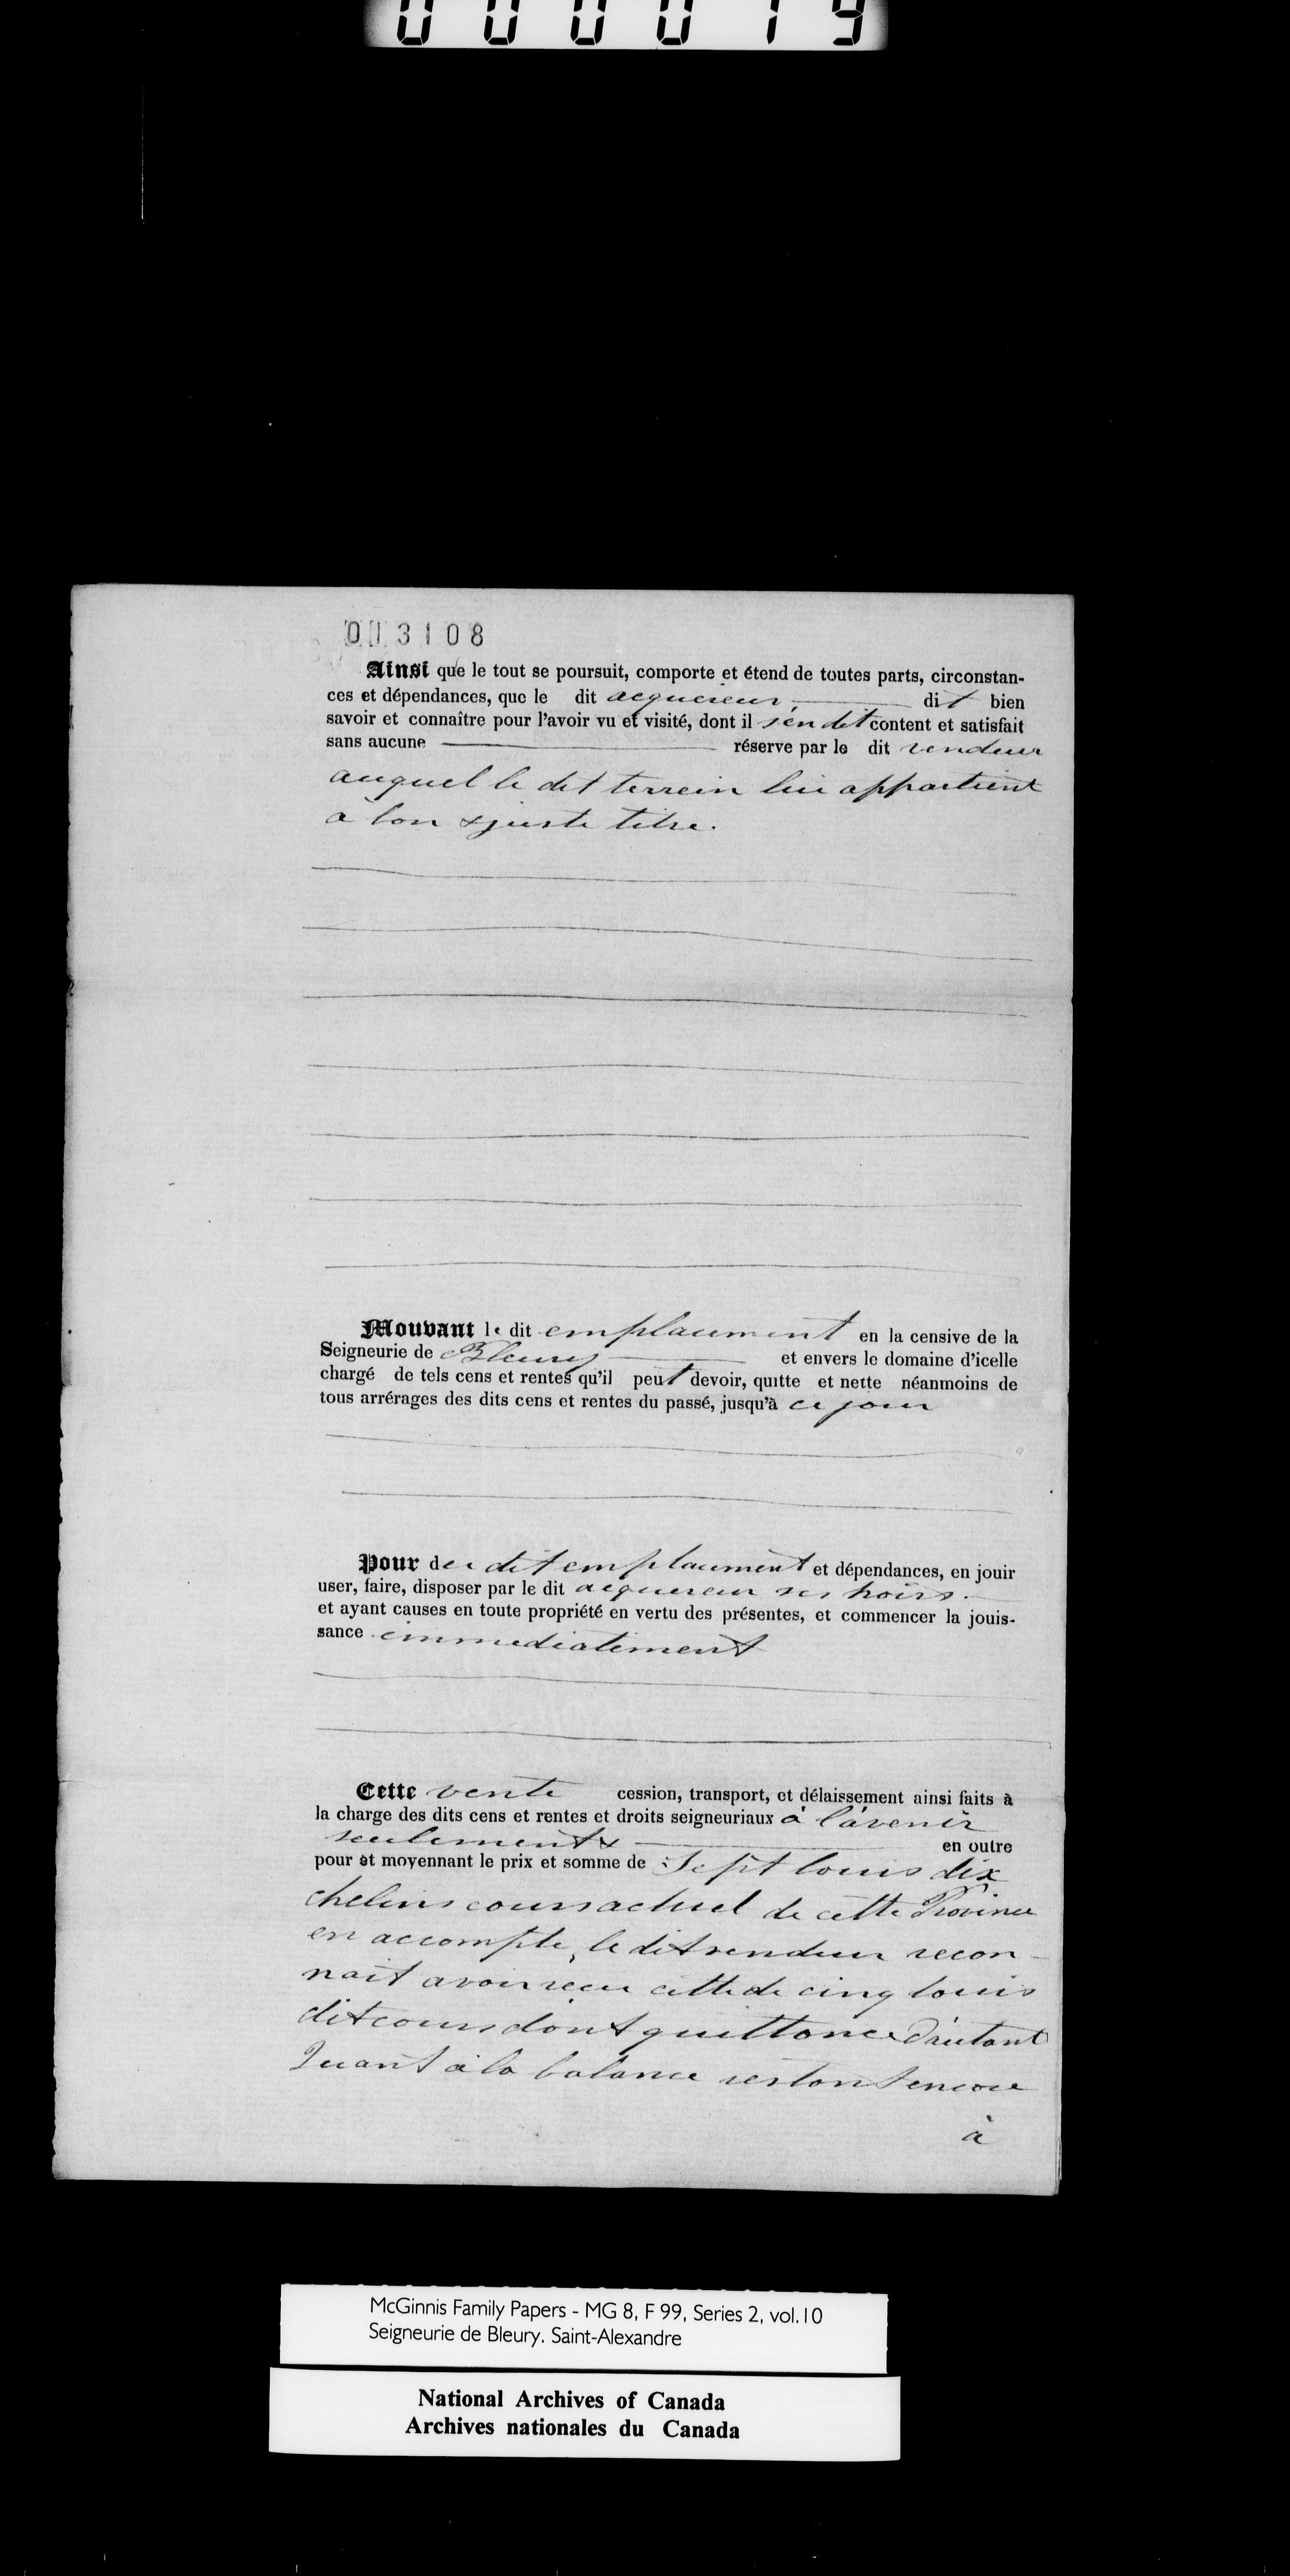 000019
003108
Ainsi que le tout se poursuit, comporte et étend de toutes parts, circonstan-
ces et dépendances, que le dit acquereur dit bien
savoir et connaître pour l'avoir vu et visité, dont il s'en dit content et satisfait
sans aucune réserve par le dit vendeur
auquel le dit terrein lui appartient
à bon & juste titre.
Mouvant le dit emplacement en la censive de la
Seigneurie de Bleury et envers le domaine d'icelle
chargé de tels cens et rentes qu'il peut devoir, quitte et nette néanmoins de
tous arrérages des dits cens et rentes du passé, jusqu'à ce jour
Pour du dit emplacement et dépendances, en jouir
user, faire, disposer par le dit acquereur ses hoirs
et ayant causes en toute propriété en vertu des présentes, et commencer la jouis-
sance immediatement
Cette vente cession, transport, et délaissement ainsi faits à
la charge des dits cens et rentes et droits seigneuriaux à l'avenir
seulement & en outre
pour et moyennant le prix et somme de Sept louis dix
chelins cours actuel de cette Province
en accompte, le dit vendeur recon-
nait avoir recu celle de cinq louis
dit cours dont quittance d'autant
Quant à la balance restant encore
à
McGinnis Family Papers - MG 8, F 99, Series 2, vol.10
Seigneurie de Bleury. Saint-Alexandre
National Archives of Canada
Archives nationales du Canada